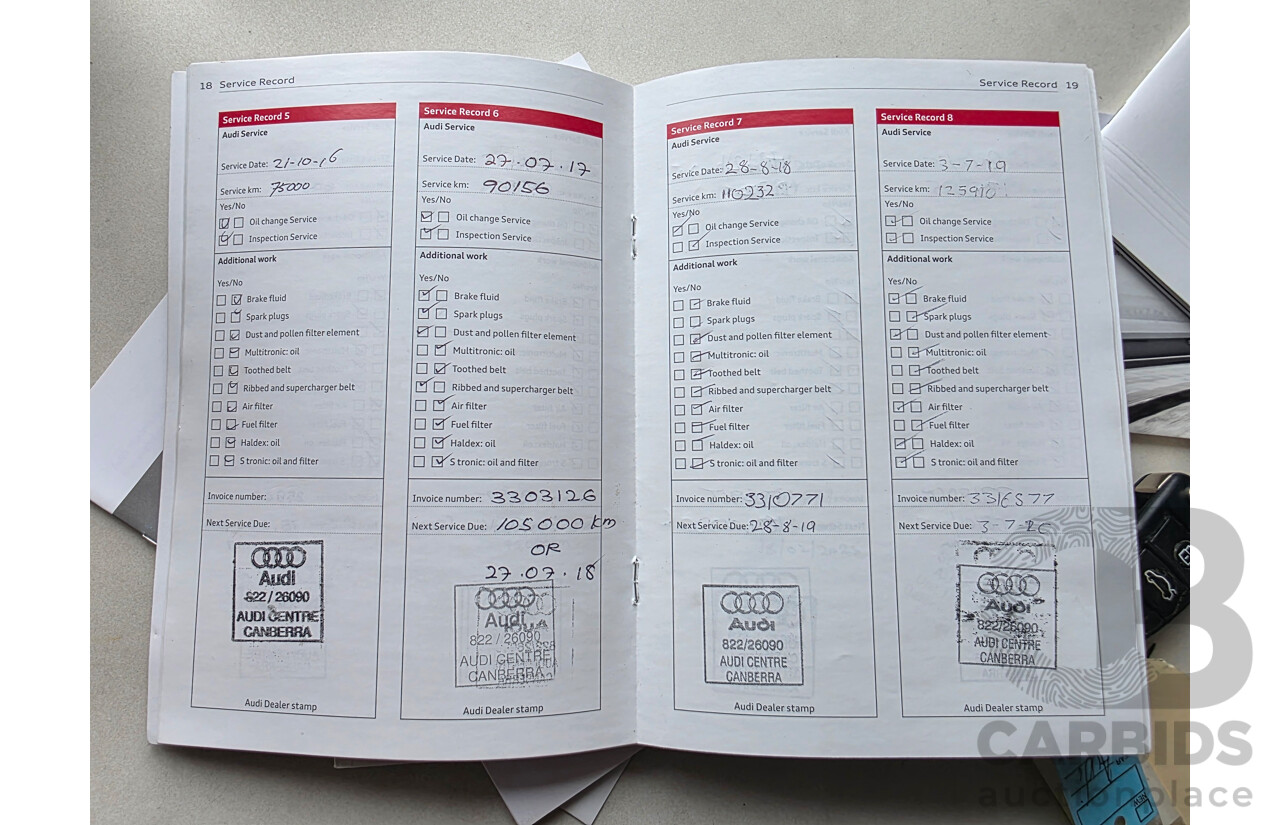 18 Service Record
Service Record 5
Audi Service
Service Date: 21-10-16
Service km: 75000
Yes/No
Oil change Service
Inspection Service
Additional work
Yes/No
Brake fluid
Spark plugs
Dust and pollen filter element
Multitronic: oil
Toothed belt
Ribbed and supercharger belt
Air filter
Fuel filter
Haldex: oil
S tronic: oil and filter
Invoice number:
Next Service Due:
Audi
822 / 26090
AUDI CENTRE
CANBERRA
Audi Dealer stamp
Service Record 6
Audi Service
Service Date: 27.07.17
Service km: 90156
Yes/No
Oil change Service
Inspection Service
Additional work
Yes/No
Brake fluid
Spark plugs
Dust and pollen filter element
Multitronic: oil
Toothed belt
Ribbed and supercharger belt
Air filter
Fuel filter
Haldex: oil
S tronic: oil and filter
Invoice number: 3303126
Next Service Due: 105000 km
OR
27.07.18
Audi
822 / 26090
AUDI CENTRE
CANBERRA
Audi Dealer stamp
Service Record 19
Service Record 7
Audi Service
Service Date: 28-8-18
Service km: 110232
Yes/No
Oil change Service
Inspection Service
Additional work
Yes/No
Brake fluid
Spark plugs
Dust and pollen filter element
Multitronic: oil
Toothed belt
Ribbed and supercharger belt
Air filter
Fuel filter
Haldex: oil
S tronic: oil and filter
Invoice number: 3310771
Next Service Due: 28-8-19
Audi
822/26090
AUDI CENTRE
CANBERRA
Audi Dealer stamp
Service Record 8
Audi Service
Service Date: 3-7-19
Service km: 125910
Yes/No
Oil change Service
Inspection Service
Additional work
Yes/No
Brake fluid
Spark plugs
Dust and pollen filter element
Multitronic: oil
Toothed belt
Ribbed and supercharger belt
Air filter
Fuel filter
Haldex: oil
S tronic: oil and filter
Invoice number: 3316577
Next Service Due: 3-7-20
Audi
822/26090
AUDI CENTRE
CANBERRA
Audi Dealer stamp
CARBIDS
auctionplace
NEW